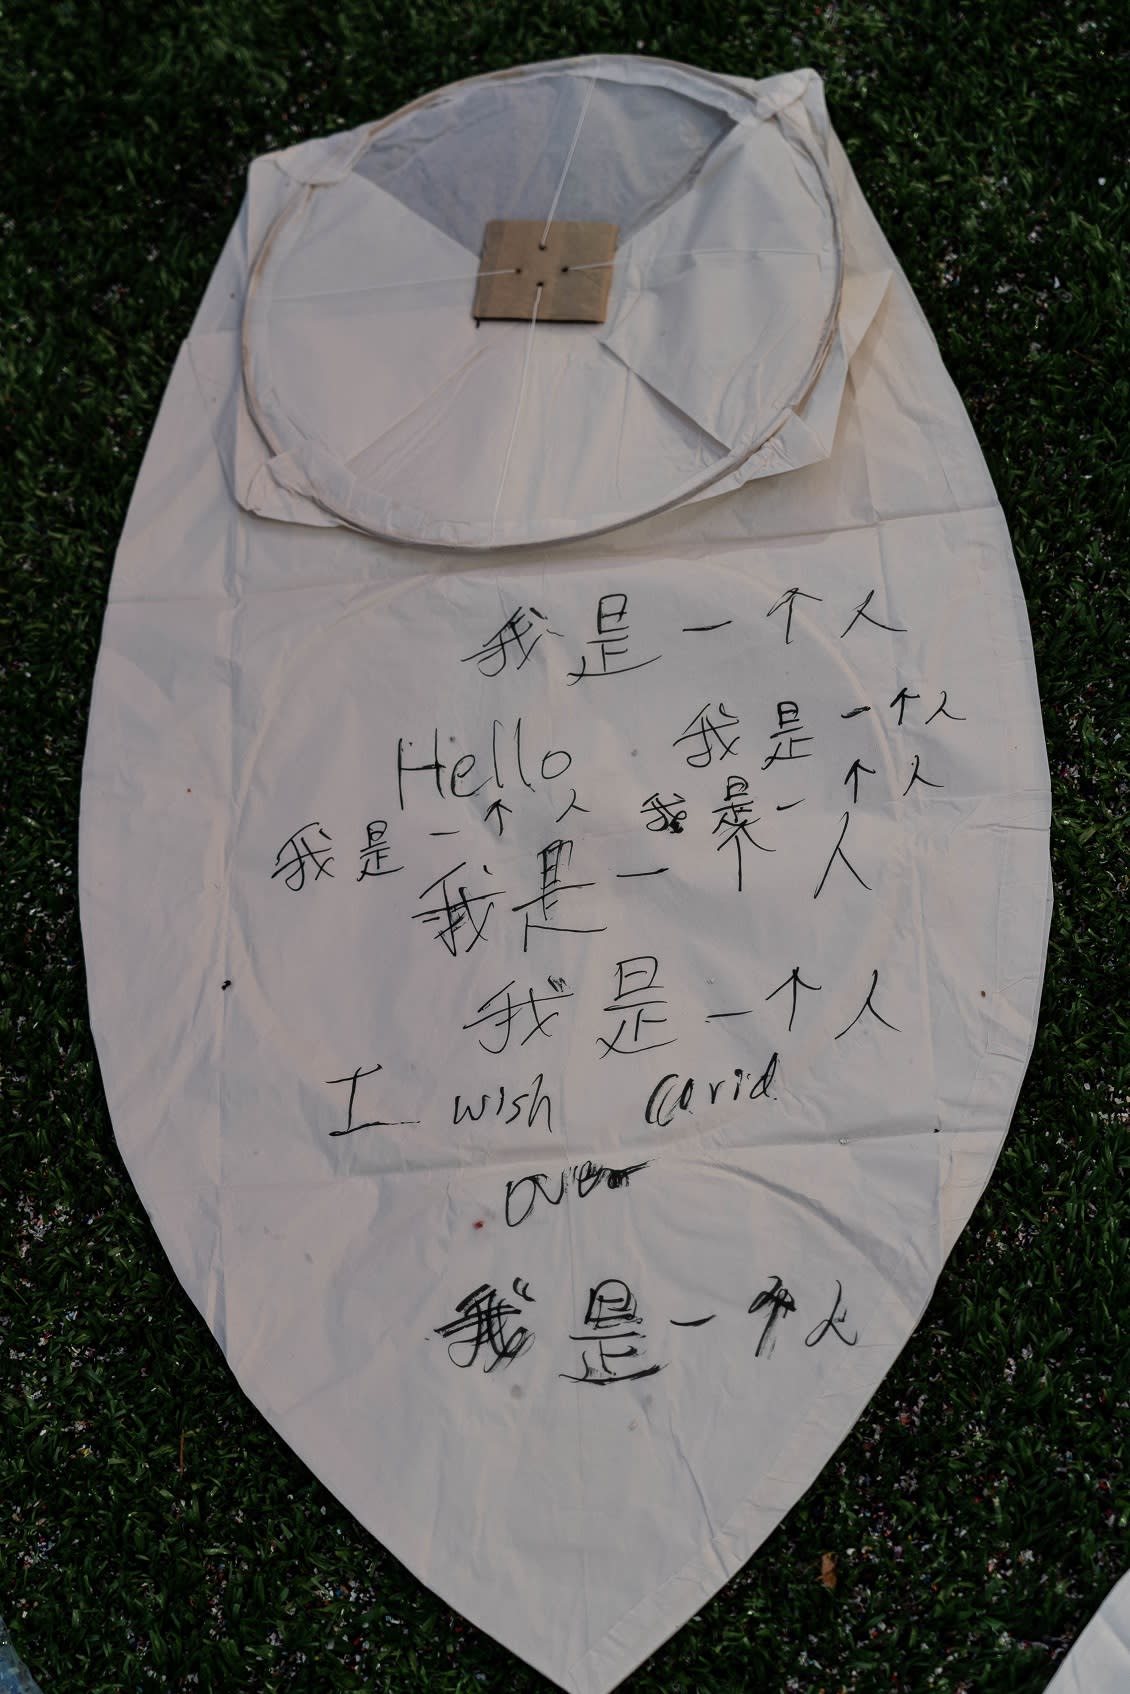 我是一个人
Hello 我是一个人
我是一个人 我是一个人
我是一个人
我是一个人
I wish Covid
over
我是一个人